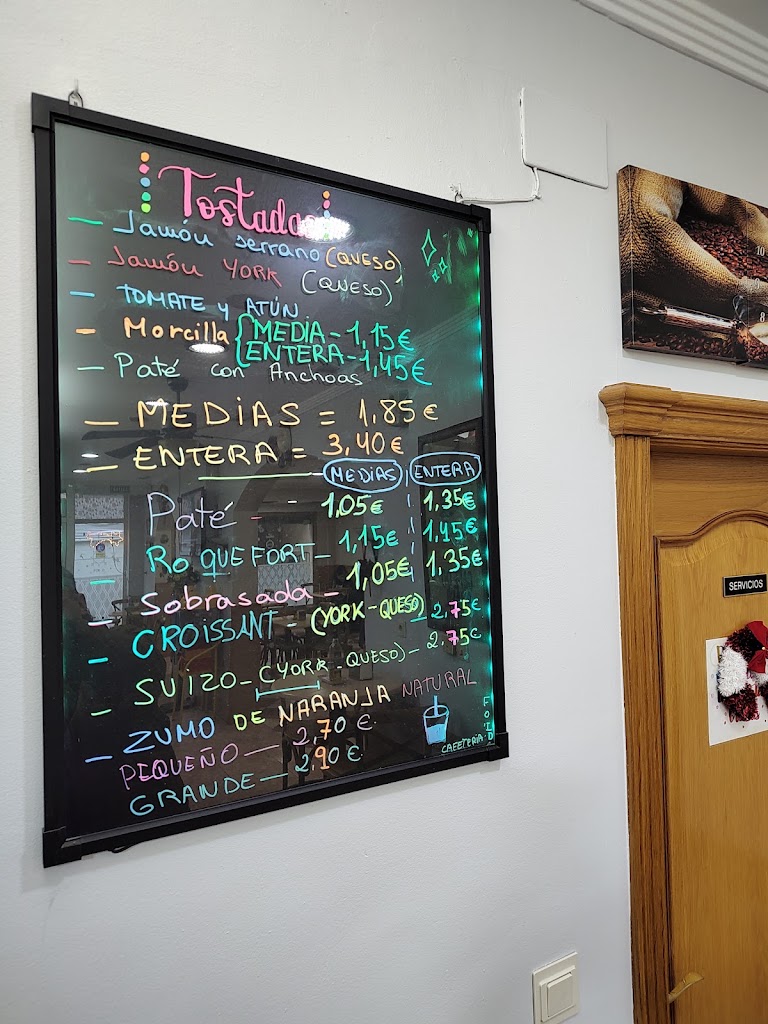 Tostadas
– Jamón serrano (QUESO)
– Jamón YORK (QUESO)
– TOMATE y ATÚN
– Morcilla { MEDIA – 1,15€
ENTERA – 1,45€
– Paté con Anchoas
– MEDIAS = 1.85€
– ENTERA = 3,40€
MEDIAS ENTERA
Paté – 1,05€ 1,35€
– ROQUEFORT – 1,15€ 1,45€
– Sobrasada – 1,05€ 1,35€
– CROISSANT – (YORK - QUESO) – 2,75€
– SUIZO – (YORK - QUESO) – 2,75€
– ZUMO DE NARANJA NATURAL
PEQUEÑO – 2,70€
GRANDE – 2,90€
CAFETERIA
SERVICIOS
10
8